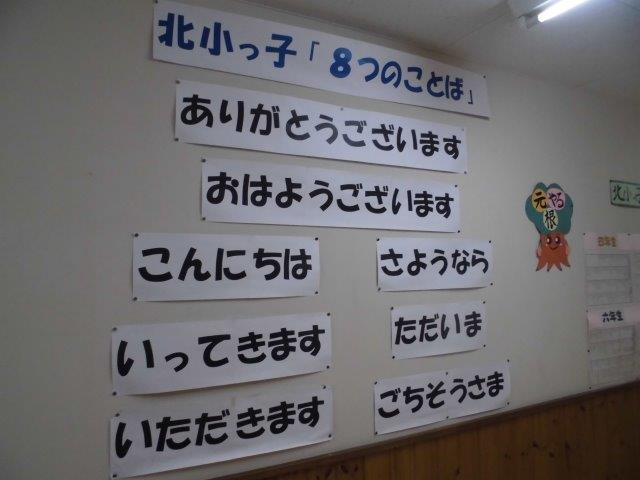 北小っ子「８つのことば」
ありがとうございます
おはようございます
こんにちは
さようなら
いってきます
ただいま
いただきます
ごちそうさま
元
やる
根
北小
六年生